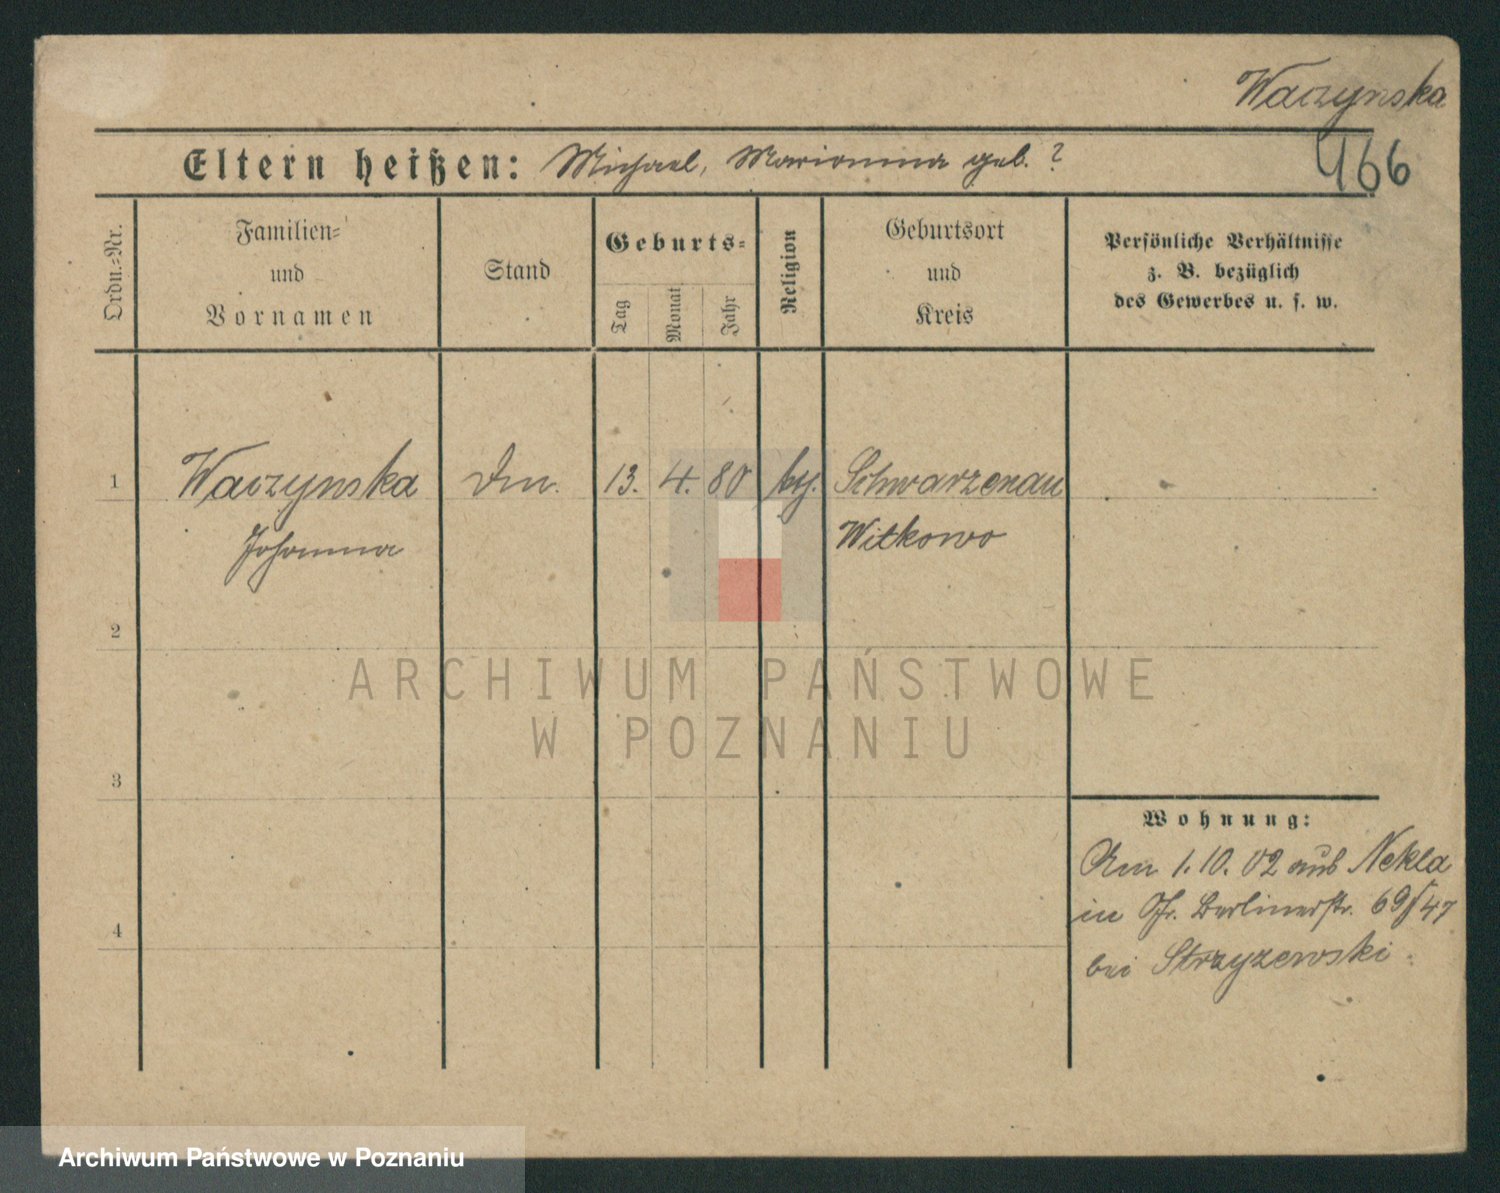 Waczynska
Eltern heißen: Michael, Marianna geb. ?
466
Ordn.-Nr.
Familien- und Vornamen
Stand
Geburts-
Tag
Monat
Jahr
Religion
Geburtsort und Kreis
Persönliche Verhältnisse
z. B. bezüglich
des Gewerbes u. s. w.
1 Waczynska 13. 4. 80 Schwarzenau
Johanna Witkowo
2
ARCHIWUM PAŃSTWOWE
W POZNANIU
3
Wohnung:
Am 1. 10. 02 aus Nekla
in Gr. Berlinerstr. 69/47
4
bei Strzyzewski.
Archiwum Państwowe w Poznaniu